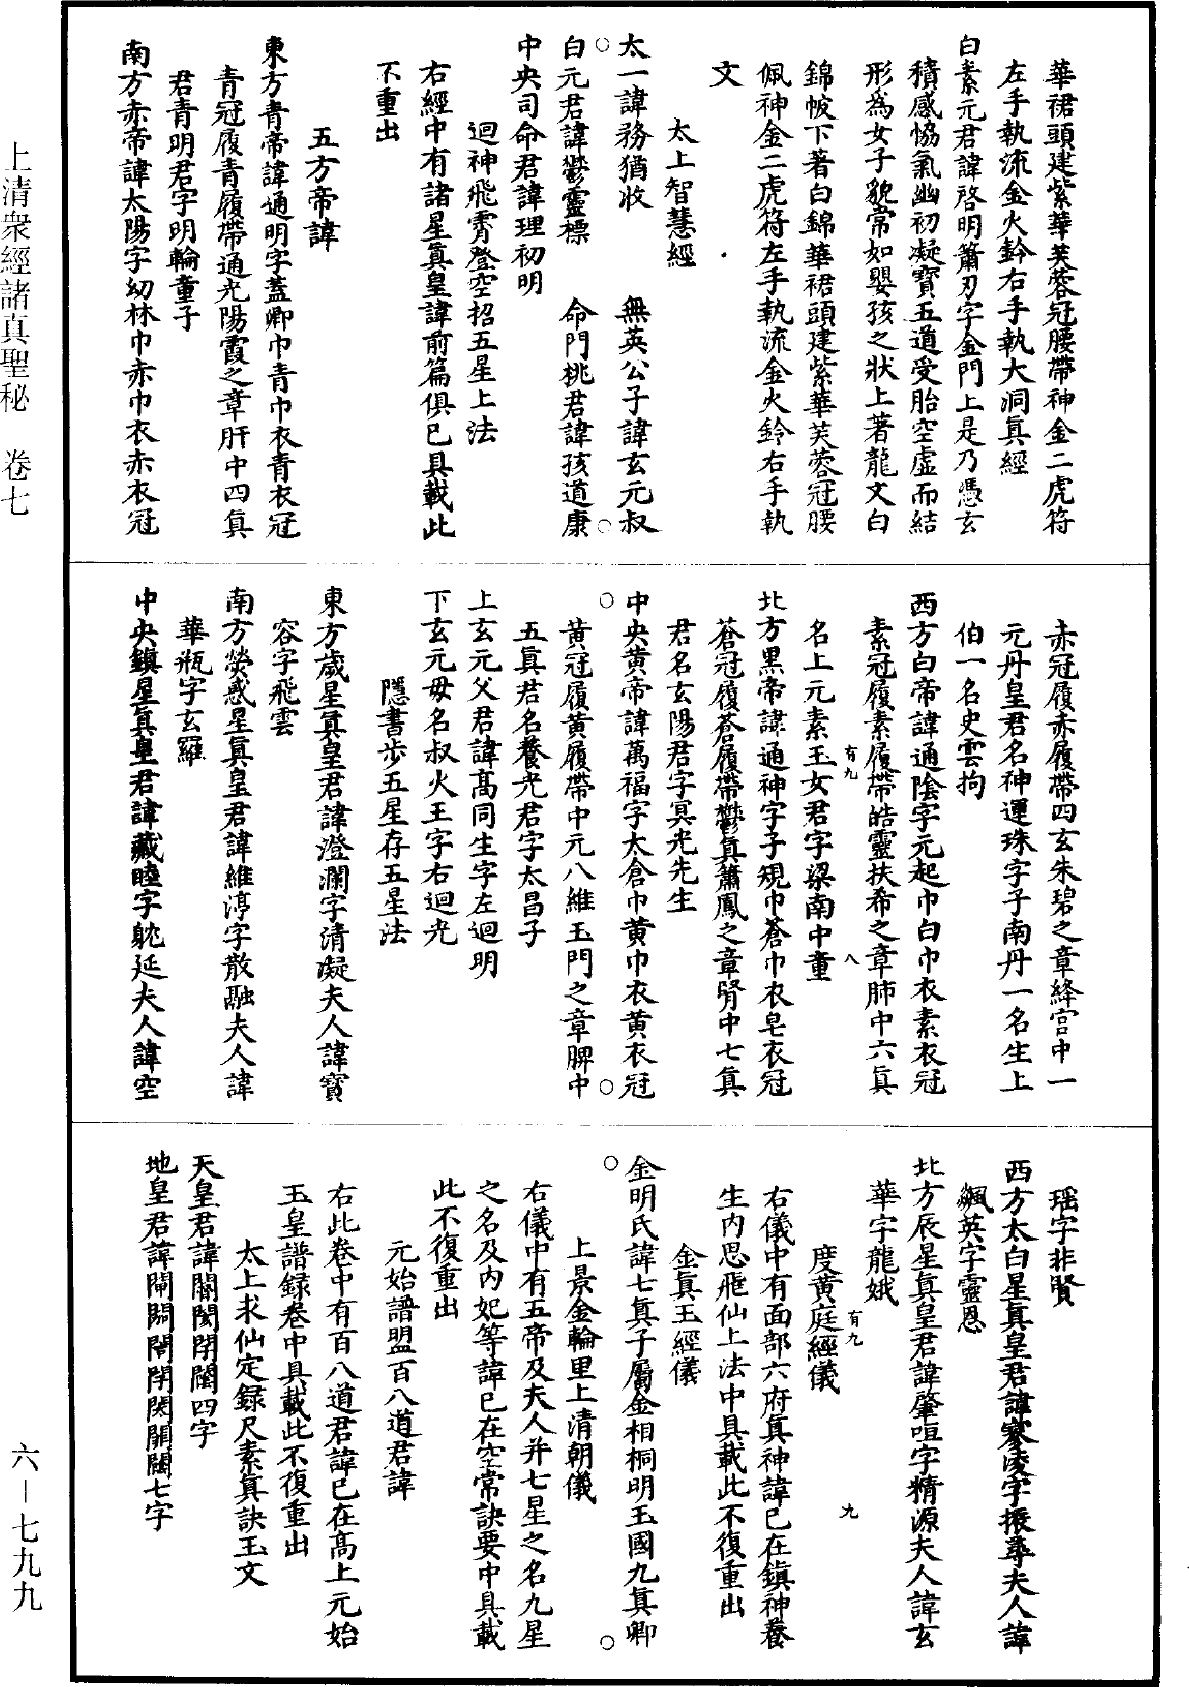 華裙頭建紫華芙蓉冠腰帶神金二虎符
左手執流金火鈴右手執大洞真經
白素元君諱啓明蕭刃字金門上是乃憑玄
積感恊氣幽初凝寶五道受胎空虛而結
形為女子貌常如嬰孩之狀上著龍文白
錦帔下著白錦華裙頭建紫華芙蓉冠腰
佩神金二虎符左手執流金火鈴右手執
文
太上智慧經
太一諱務猶收　無英公子諱玄元叔
白元君諱鬱靈標　命門桃君諱孩道康
中央司命君諱理初明
迴神飛霄登空招五星上法
右經中有諸星真皇諱前篇俱已具載此
不重出
五方帝諱
東方青帝諱通明字蓋卿巾青巾衣青衣冠
青冠履青履帶通光陽霞之章肝中四真
君青明君字明輪童子
南方赤帝諱太陽字幼林巾赤巾衣赤衣冠
赤冠履赤履帶四玄朱碧之章絳宮中一
元丹皇君名神運珠字子南丹一名生上
伯一名史雲拘
西方白帝諱通陰字元起巾白巾衣素衣冠
素冠履素履帶皓靈扶希之章肺中六真
名上元素玉女君字梁南中童
北方黑帝諱通神字子規巾蒼巾衣皂衣冠
蒼冠履蒼履帶鬱真蕭鳳之章腎中七真
君名玄陽君字冥光先生
中央黃帝諱萬福字太倉巾黃巾衣黃衣冠
黃冠履黃履帶中元八維玉門之章脾中
五真君名養光君字太昌子
上玄元父君諱高同生字左迴明
下玄元母名叔火王字右迴光
隱書步五星存五星法
東方歲星真皇君諱澄瀾字清凝夫人諱寶
容字飛雲
南方熒惑星真皇君諱維渟字散融夫人諱
華瓶字玄羅
中央鎮星真皇君諱藏睦字躭延夫人諱空
瑶字非賢
西方太白星真皇君諱寥凌字振尋夫人諱
飆英字靈恩
北方辰星真皇君諱肇咺字精源夫人諱玄
華字龍娥
度黃庭經儀
右儀中有面部六府真神諱已在鎮神養
生內思飛仙上法中具載此不復重出
金真玉經儀
金明氏諱七真子屬金相桐明玉國九真卿
上景金輪里上清朝儀
右儀中有五帝及夫人并七星之名九星
之名及內妃等諱已在空常訣要中具載
此不復重出
元始譜盟百八道君諱
右此卷中有百八道君諱已在高上元始
玉皇譜録卷中具載此不復重出
太上求仙定録尺素真訣玉文
天皇君諱四字
地皇君諱七字
有九
八
有九
九
上清衆經諸真聖秘　卷七
六—七九九